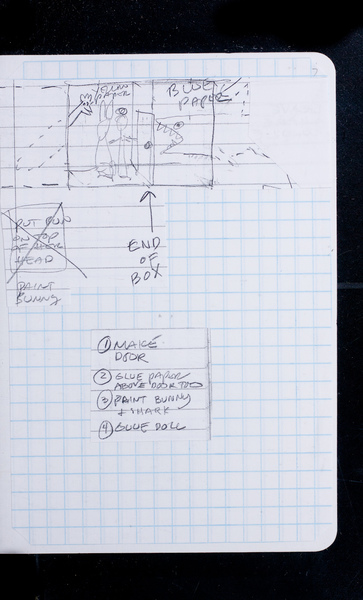 YELLOW
PAPER
BLUE
PAPER
PUT
ON TOP
HEAD
END
OF
BOX
PAINT
BUNNY
① MAKE
DOOR
② GLUE PAPER
ABOVE DOOR TOO
③ PAINT BUNNY
+ SHARK
④ GLUE DOLL